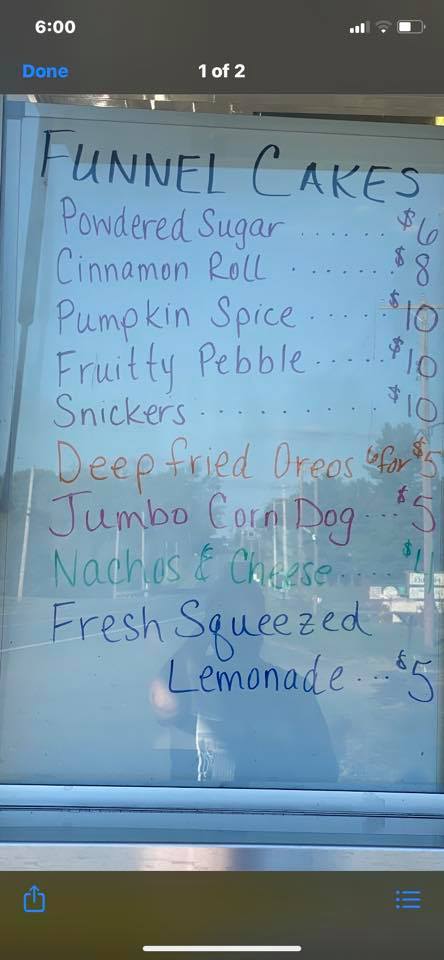 6:00
Done
1 of 2
FUNNEL CAKES
Powdered Sugar ....... $6
Cinnamon Roll ....... $8
Pumpkin Spice ..... $10
Fruitty Pebble ..... $10
Snickers ........... $10
Deep fried Oreos 6 for $5
Jumbo Corn Dog ... $5
Nachos & Cheese .....
Fresh Squeezed
Lemonade ... $5